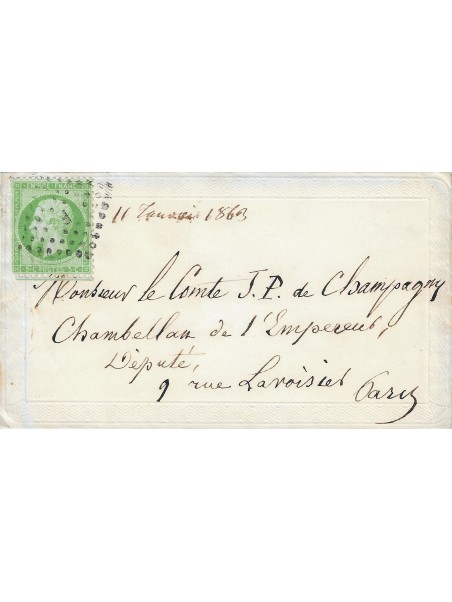 EMPIRE FRANC
11 Janvier 1863
Monsieur le Comte J. P. de Champagny
Chambellan de l'Empereur,
Député,
9 rue Lavoisier Paris